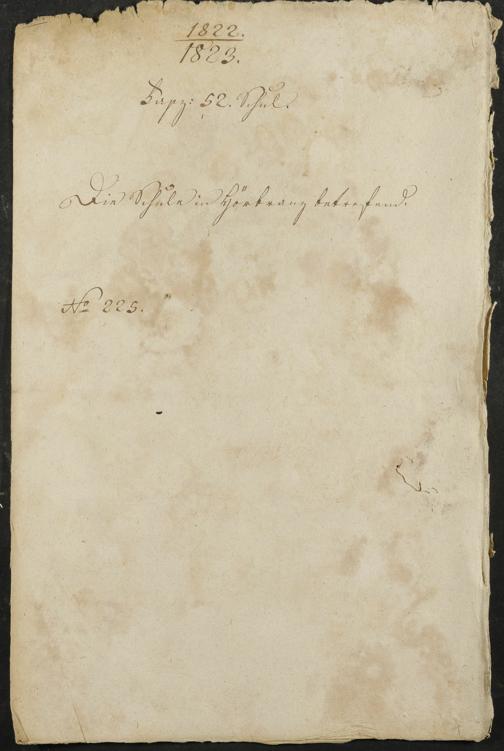 1822.
1823.
Fasz: 52. Schul.
Die Schule in Hörbranz betreffend.
No 225.